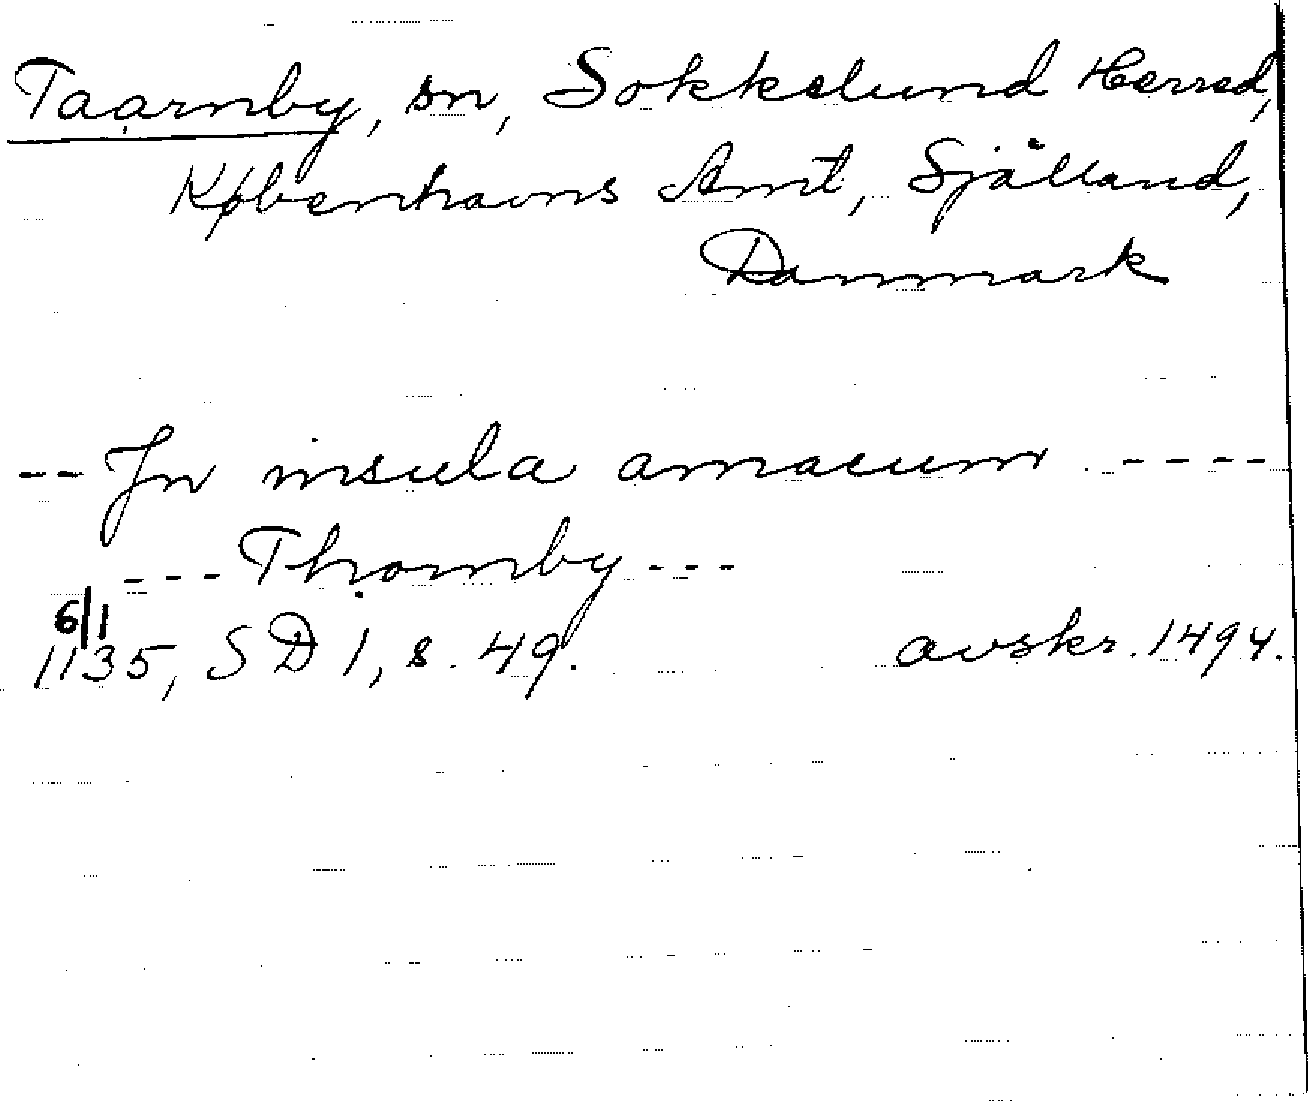 Taarnby, sn, Sokkelund Herred,
Københavns Amt, Själland,
Danmark
-- In insula amacum ----
--- Thornby ---
6/1
1135, SD 1, s. 49. avskr. 1494.